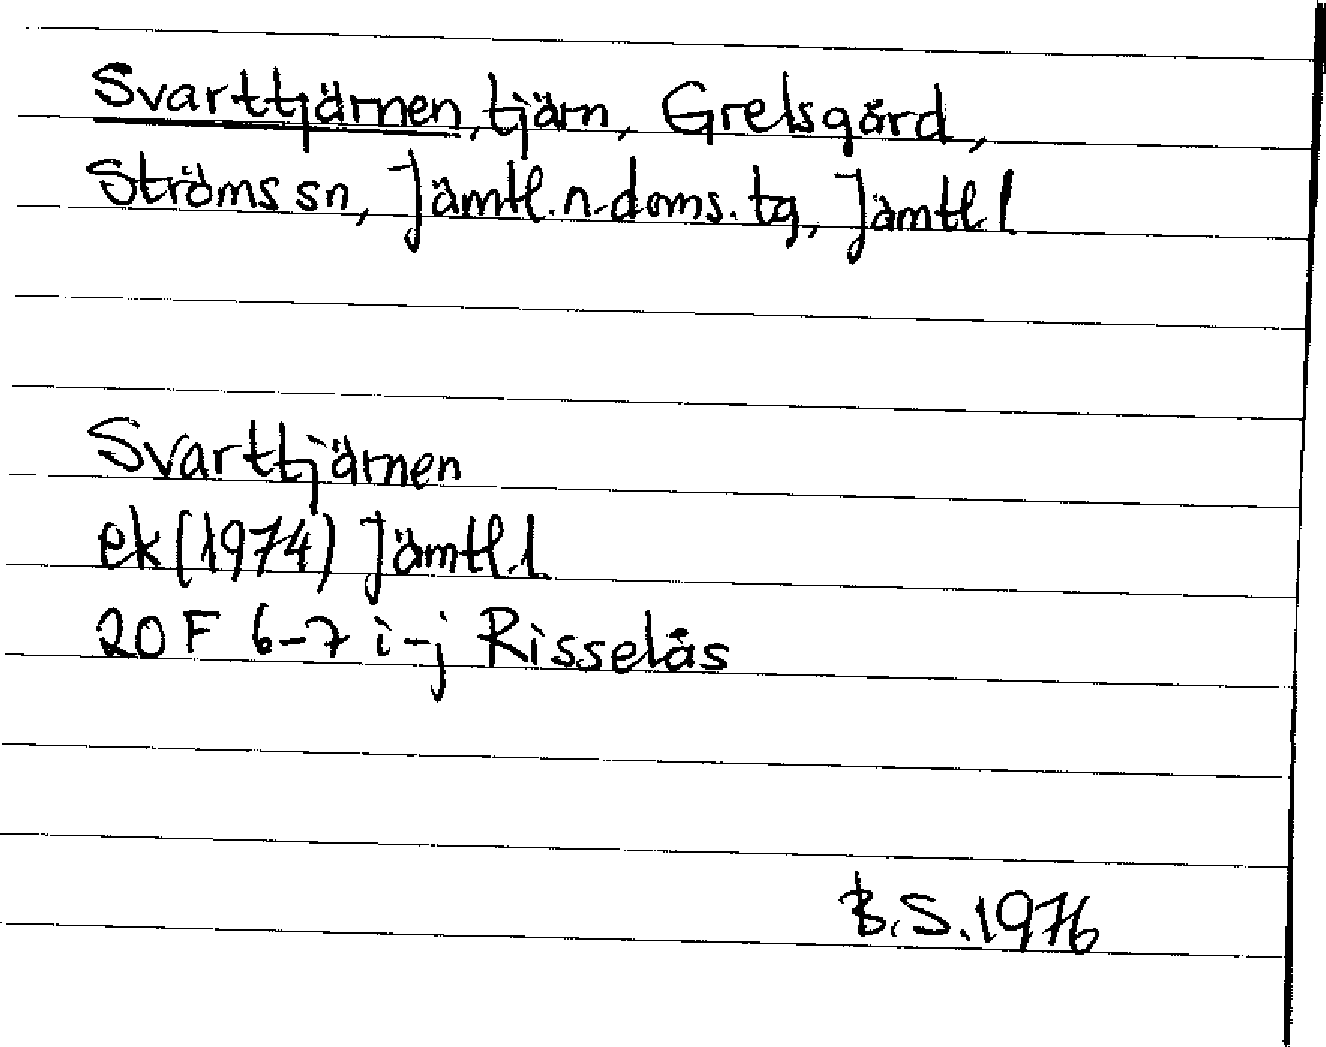 Svarttjärnen, tjärn, Grelsgård,
Ströms sn, Jämtl. n. doms. tg, Jämtl. l
Svarttjärnen
ek (1974) Jämtl. l
20 F 6-7 i-j Risselås
B.S. 1976